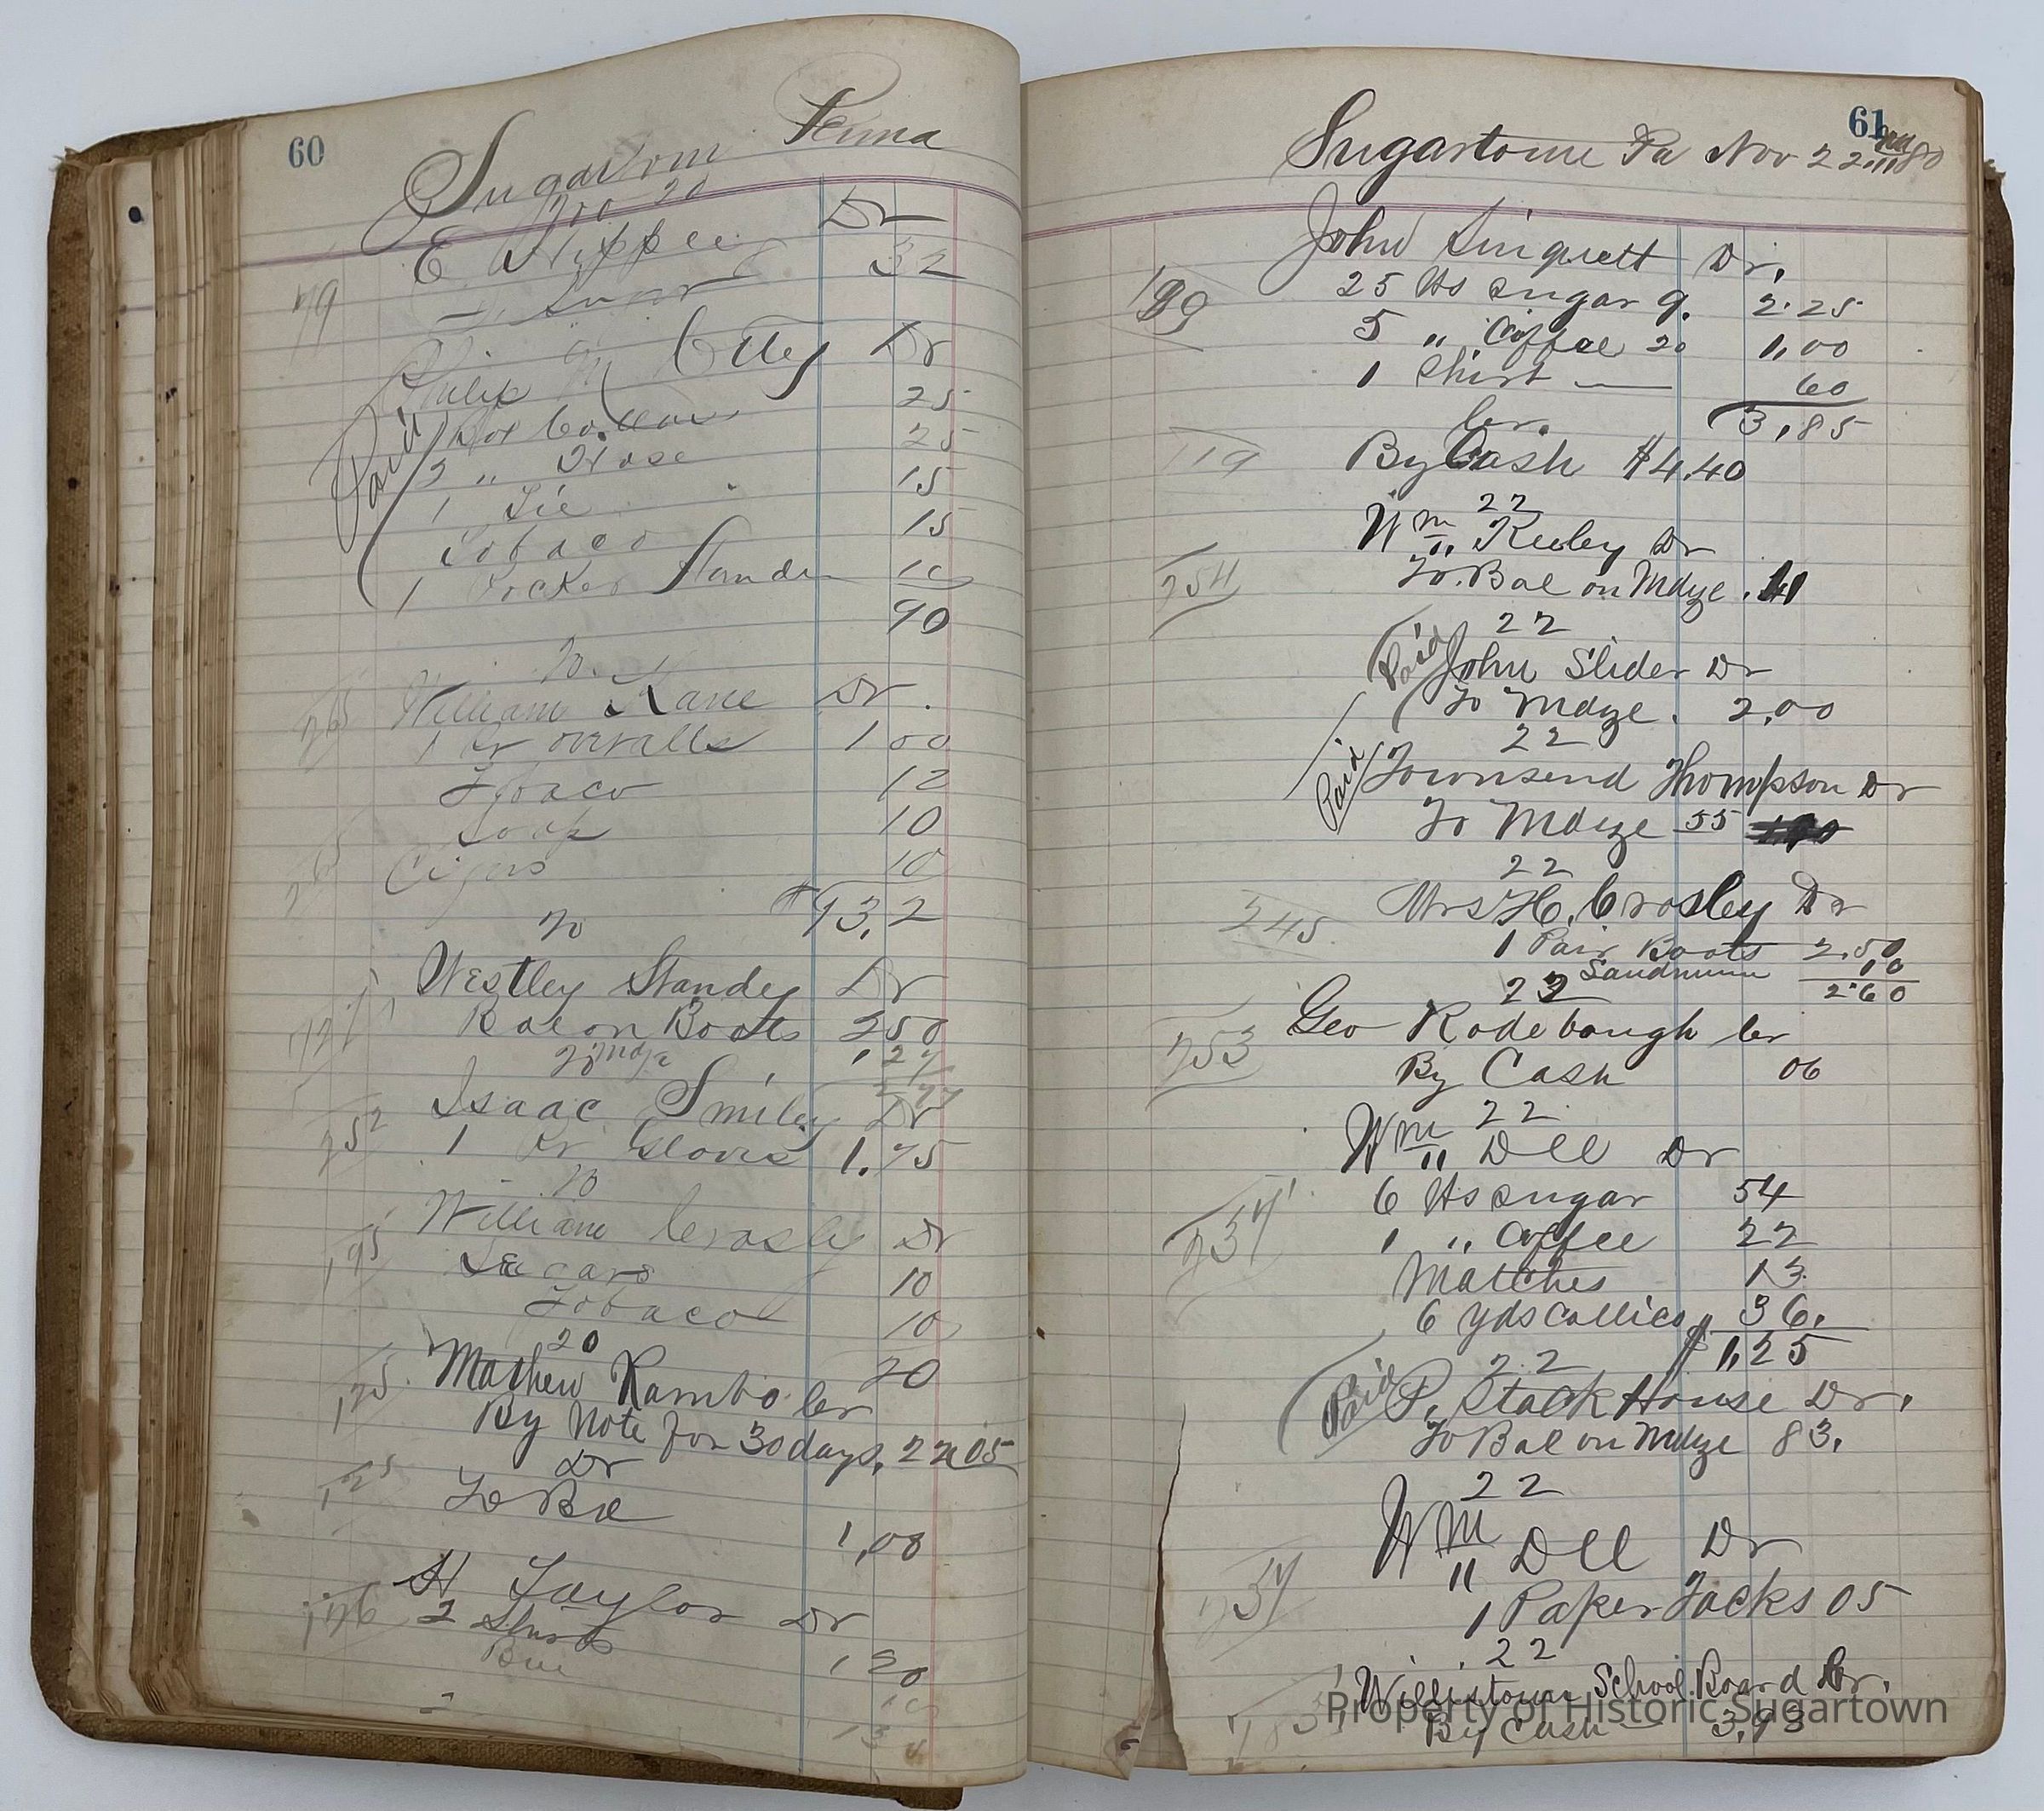 60
Sugartown Penna
Nov 20
E Hippee Dr
79 Sugar 32
Philip M Utley Dr
Paid
1 Box Collars 25
2 " Hose 25
1 Tie 15
Tobaco 15
1 Pocket 10
90
20
265 William Kane Dr.
1 Pr overalls 1 00
Tobaco 12
Soap 10
265 Cigars 10
$1 3,2
20
Westley Standey Dr
Bal on Boots 250
Mdze ,27
2 77
Isaac Smiley Dr
252 1 Pr Gloves 1.75
20
William Crosly Dr
195 Segars 10
Tobaco 10
20
20
Mathew Rambo Cr
125 By Note for 30 days, 22 05
Dr
125 To Bal
1,08
H Taylor Dr
176 2 Shirts
1,20
10
13
61
Sugartown Pa Nov 22 1880
John Sinquett Dr.
189 25 lbs sugar 9. 2.25
5 " Coffee 20 1,00
1 Shirt — 60
Cr. 3,85
119 By Cash $4.40
22
Wm Ruley Dr
254 To. Bal on Mdze .41
22
Paid John Slider Dr
To Mdze. 2,00
22
Paid Townsend Thompson Dr
To Mdze 55
22
Mrs H. Crosley Dr
245 1 Pair Boots 2.50
10
22 2.60
Geo Rodebough Cr
253 By Cash 06
22
Wm Dell Dr
237 6 lbs sugar 54
1 " Coffee 22
Matches 13
6 yds callico 36.
$ 1,25
22
Paid P. Stack House Dr.
To Bal on Mdze 83.
22
Wm Dell Dr
237
1 Paper Tacks 05
22
Willistown School Board Cr.
By Cash — 3,93
Property of Historic Sugartown